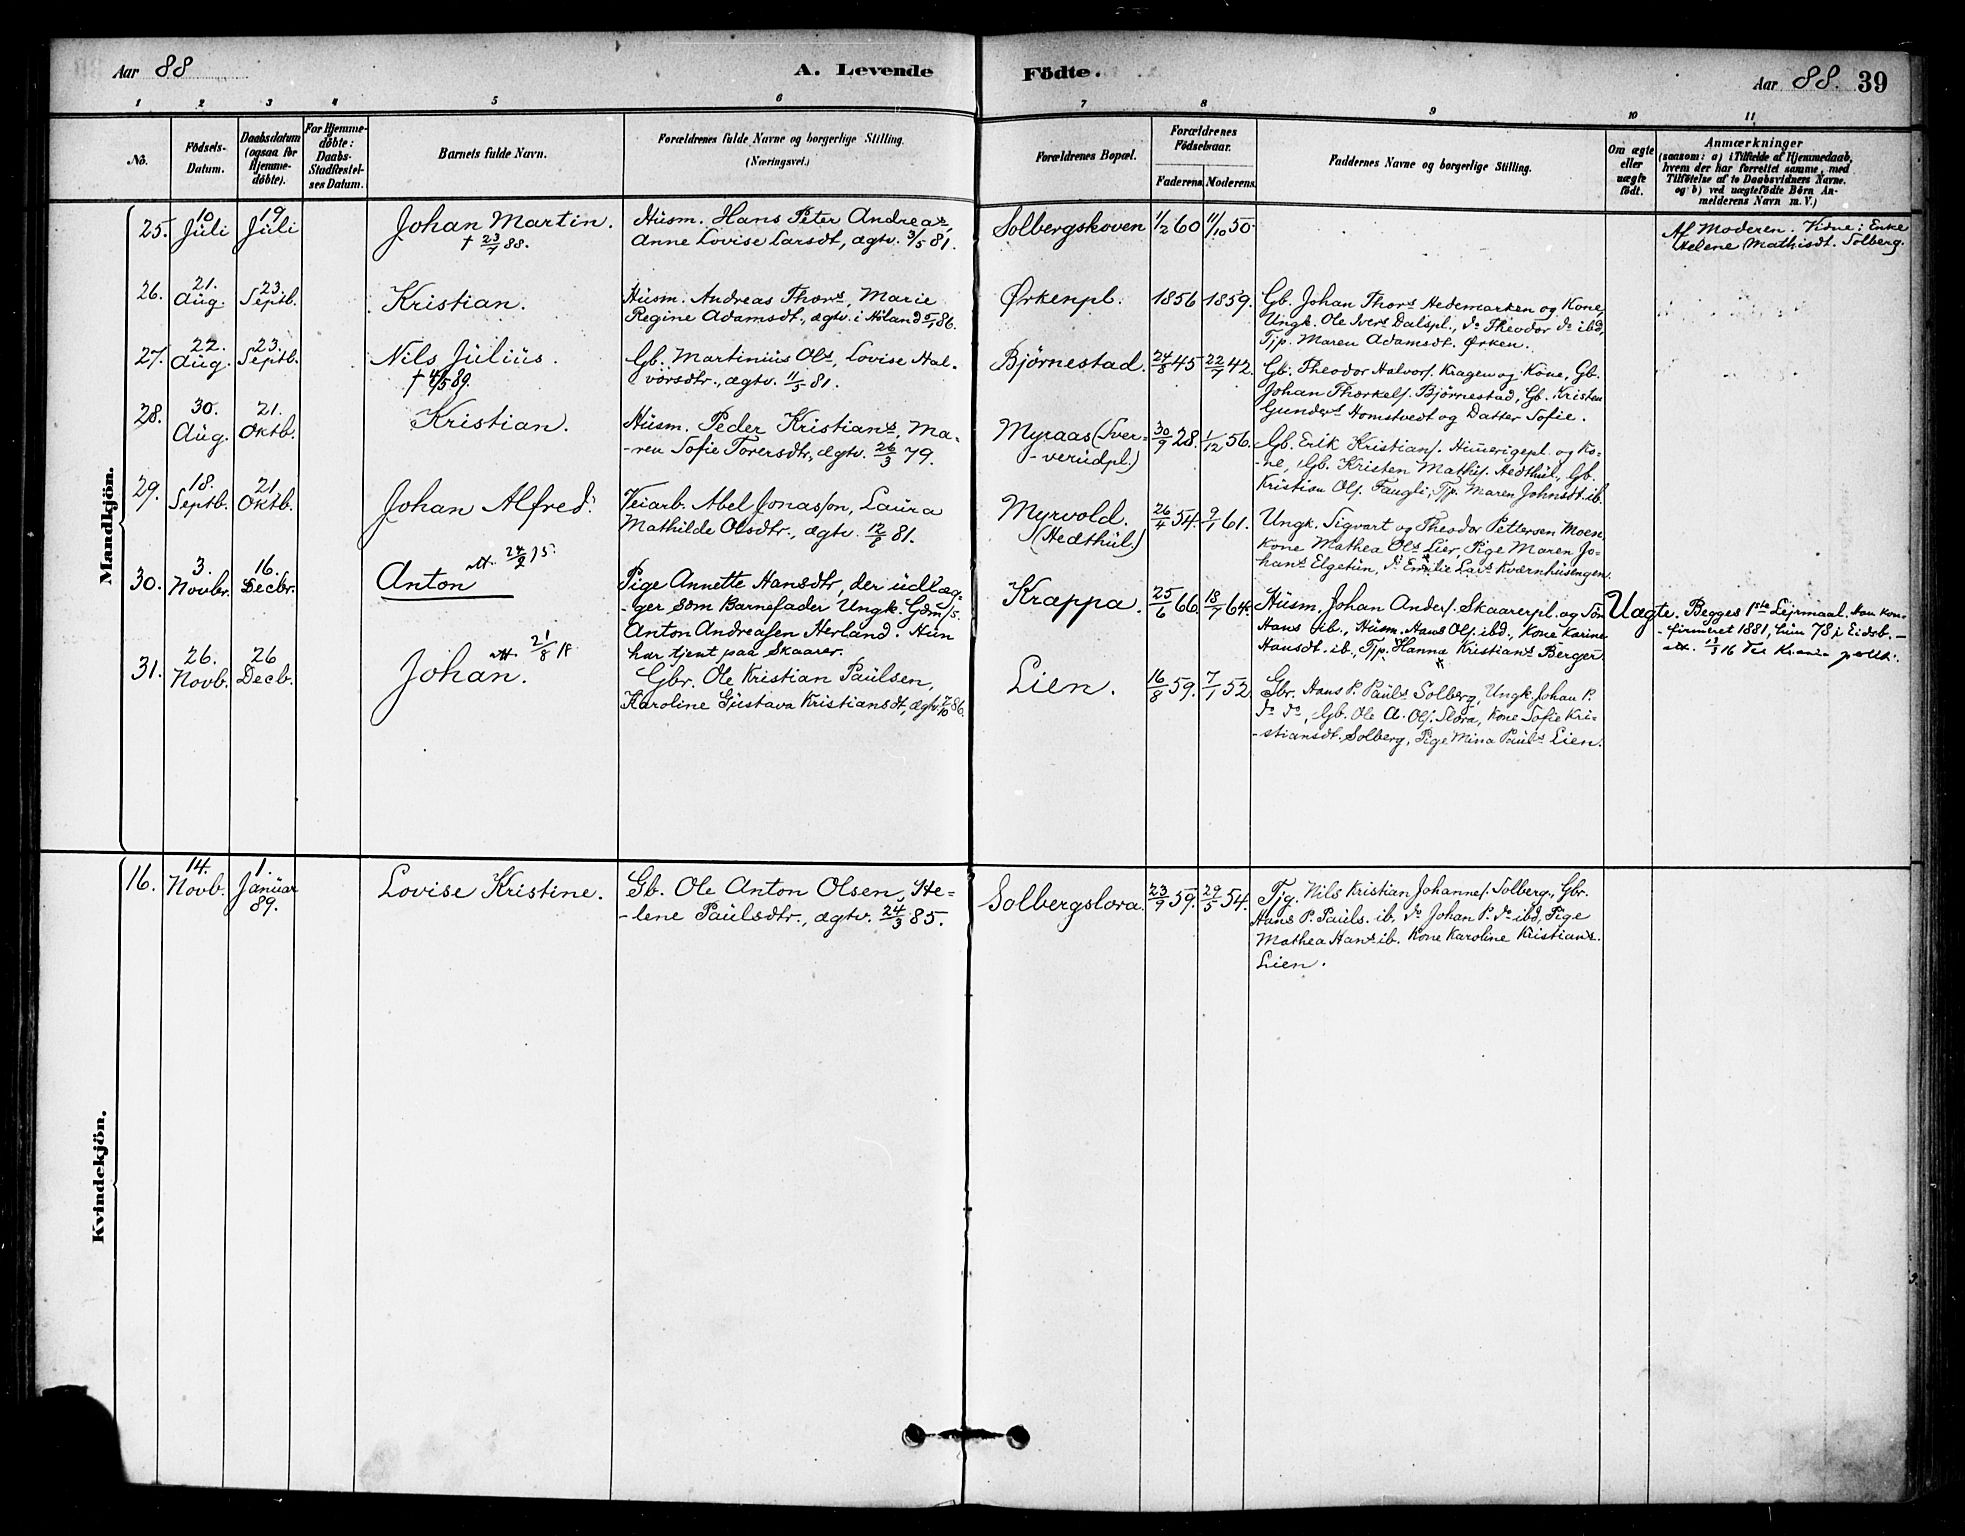 Aar 88
A. Levende
Födte.
Aar 88. 39
1 2 3 4 5 6 7 8 9 10 11
No.
Födsels-
Datum.
Daabsdatum
(ogsaa for
Hjemme-
döbte).
For Hjemme-
døbte:
Daabs-
Stadfæstel-
ses Datum.
Barnets fulde Navn.
Forældrenes fulde Navne og borgerlige Stilling.
(Næringsvei.)
Forældrenes Bopæl.
Forældrenes
Födselsaar.
Faderens. Moderens.
Faddernes Navne og borgerlige Stilling.
Om ægte
eller
uægte
født.
Anmærkninger
(saasom: a) i Tilfælde af Hjemmedaab,
hvem der har forrettet samme, med
Tilföielse af to Daabsvidners Navne.
og b) ved uægtefödte Börn An-
melderens Navn m. V.)
Mandkjön.
25. 10 Juli 19 Juli
Johan Martin.
† 23/7 88.
Husm. Hans Peter Andreas,
Anne Lovise Larsdt, ægtv. 3/5 81.
Solbergskoven 1/2 60 11/10 50
Af Moderen. Vidne: Enke
Helene Mathisdt. Solberg.
26. 21. Aug. 23. Septb.
Kristian.
Husm. Andreas Thors, Marie
Regine Adamsdt., ægtv. i Høland 86.
Ørkenpl. 1856 1859.
Gb. Johan Thors Hedemarken og Kone,
Ungk. Ole Ivers Dalspl., do Theodor do ibd,
Tjp. Maren Adamsdt. Ørken.
27. 22. Aug. 23. Septb.
Nils Julius.
† 4/5 89.
Gb. Martinius Ols, Lovise Hal-
vorsdtr., ægtv. 11/3 81.
Bjørnestad. 24/8 45 22/7 42.
Gb. Theodor Halvors. Kragen og Kone, Gb.
Johan Thorkels. Bjørnestad, Gb. Kristen
Gunders Homstvedt og Datter Sofie.
28. 30. Aug. 21. Oktb.
Kristian.
Husm. Peder Kristians, Ma-
-ren Sofie Torersdtr, ægtv. 26/3 79.
Myraas (Sver-
-verudpl.) 30/9 28. 1/12 56.
Gb. Erik Kristians. og Ko-
-ne, Gb. Kristen Mathis. Hedthul, Gb.
Kristian Ols. Faugli, Tjp. Maren Johnsdt. ib.
29. 18. Septb. 21. Oktb.
Johan Alfred.
Veiarb. Abel Jonasson, Laura
Mathilde Olsdtr., ægtv. 12/8 81.
Myrvold.
(Hedthul.) 26/4 54. 9/1 61.
Ungk. Sigvart og Theodor Pettersen Moen,
Kone Mathea Ols Lier, Pige Maren Jo-
hans Elgetun, do Emilie Lars Kværnhusengen.
30. 3. Novbr. 16. Decbr.
Anton att. 24/2 15.
Pige Annette Hansdtr, der udlæg-
-ger som Barnefader Ungk. Gdms.
Anton Andreasen Herland. Hun
har tjent paa Skaarer.
Krappa. 25/6 66. 18/7 64.
Husm. Johan Anders. Skaarerpl. og Søn
Hans ib., Husm. Hans Ols. ibd., Kone Karine
Hansdt. ib., Tjp. Hanna Kristians Berger.
Uægte. Begges 1ste Lejrmaal. Han kon-
-firmeret 1881, hun 78 i Eidsb. -
31. 26. Novb. 26 Decb.
Johan. att. 21/8 18
Gbr. Ole Kristian Paulsen,
Karoline Gustava Kristiansdt, ægtv. 7/10 86.
Lien. 16/8 59. 7/1 52
Gbr. Hans P. Pauls Solberg, Ungk. Johan P.
do do, Gb. Ole A. Ols. Slora, Kone Sofie Kri-
-stiansdt. Solberg, Pige Mina Pauls Lien.
Kvindekjön.
16. 14. Novb. 1. Januar 89.
Lovise Kristine.
Gb. Ole Anton Olsen, He-
-lene Paulsdtr., ægtv. 24/3 85.
Solbergslora. 23/9 59. 29/5 54.
Tjg. Nils Kristian Johannes. Solberg, Gbr.
Hans P. Pauls. ib. do Johan P. do ibd, Pige
Mathea Hans ib. Kone Karoline Kristians.
Lien.